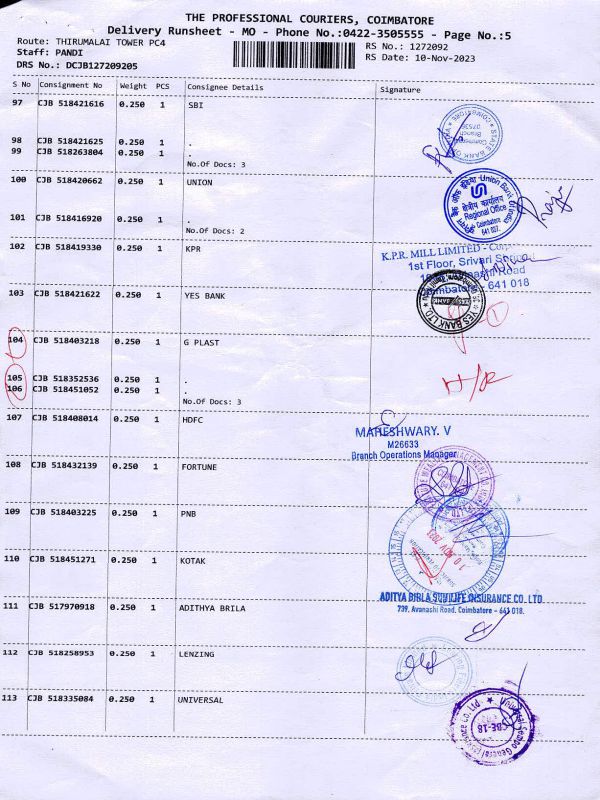 THE PROFESSIONAL COURIERS, COIMBATORE
Delivery Runsheet - MO - Phone No.:0422-3505555 - Page No.:5
Route: THIRUMALAI TOWER PC4
RS No.: 1272092
Staff: PANDI
RS Date: 10-Nov-2023
DRS No.: DCJB127209205
S No Consignment No Weight PCS Consignee Details Signature
97 CJB 518421616 0.250 1 SBI
98 CJB 518421625 0.250 1 .
99 CJB 518263804 0.250 1 .
No.Of Docs: 3
STATE BANK
100 CJB 518420662 0.250 1 UNION
Union Bank
क्षेत्रीय कार्यालय
Regional Office
Coimbatore
641 037.
101 CJB 518416920 0.250 1 .
No.Of Docs: 2
102 CJB 518419330 0.250 1 KPR
K.P.R. MILL LIMITED
1st Floor, Srivari
Road
Coimbatore 641 018
103 CJB 518421622 0.250 1 YES BANK
YES BANK LTD
104 CJB 518403218 0.250 1 G PLAST
105 CJB 518352536 0.250 1 .
106 CJB 518451052 0.250 1 .
No.Of Docs: 3
H/R
107 CJB 518408014 0.250 1 HDFC
MAHESHWARY. V
M26633
Branch Operations Manager
108 CJB 518432139 0.250 1 FORTUNE
109 CJB 518403225 0.250 1 PNB
10 NOV 2023
110 CJB 518451271 0.250 1 KOTAK
ADITYA BIRLA SUN LIFE INSURANCE CO. LTD.
739, Avanashi Road, Coimbatore - 641 018.
111 CJB 517970918 0.250 1 ADITHYA BRILA
112 CJB 518258953 0.250 1 LENZING
113 CJB 518335084 0.250 1 UNIVERSAL
CBE-18